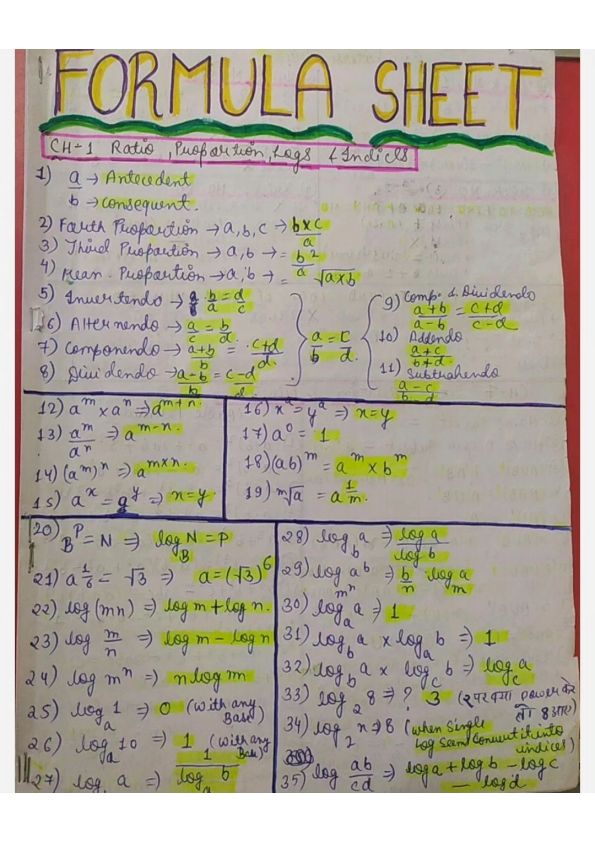 FORMULA SHEET
CH-1 Ratio, Proportion, Logs & Indices
1) a → Antecedent
b → consequent.
2) Fourth Proportion → a, b, c → b×c/a
3) Third Proportion → a, b → = b²/a
4) Mean Proportion → a, b → = √a×b
5) Invertendo → b/a = d/c
6) Alternendo → a/c = b/d
7) Componendo → a+b/b = c+d/d
8) Dividendo → a-b/b = c-d/d
a/b = c/d
9) Comp. & Dividendo
a+b/a-b = c+d/c-d
10) Addendo
a+c/b+d
11) Subtrahendo
a-c/b-d
12) aᵐ × aⁿ ⇒ aᵐ⁺ⁿ
13) aᵐ/aⁿ ⇒ aᵐ⁻ⁿ
14) (aᵐ)ⁿ ⇒ aᵐˣⁿ
15) aˣ = aʸ ⇒ x=y
16) xᵃ = yᵃ ⇒ x=y
17) a⁰ = 1
18) (ab)ᵐ = aᵐ × bᵐ
19) ᵐ√a = a^1/m.
20) Bᴾ = N ⇒ log_B N = P
21) a^1/6 = √3 ⇒ a = (√3)⁶
22) log (mn) ⇒ log m + log n.
23) log m/n ⇒ log m - log n
24) log mⁿ ⇒ n log m
25) log_a 1 ⇒ 0 (with any Base)
26) log_a 10 ⇒ 1 (with any Base)
27) log a ⇒ 1/log_a b
28) log_b a ⇒ log a/log b
29) log a^b m^n ⇒ b/n log_m a
30) log_a a ⇒ 1
31) log_b a × log_a b ⇒ 1
32) log_b a × log_c b ⇒ log_c a
33) log_2 8 ⇒ ? 3 (2 पर क्या power करे
तो 8 आए)
34) log_2 n ⇒ 8 (when single
log seen convert it into
indices)
35) log ab/cd ⇒ log a + log b - log c
- log d